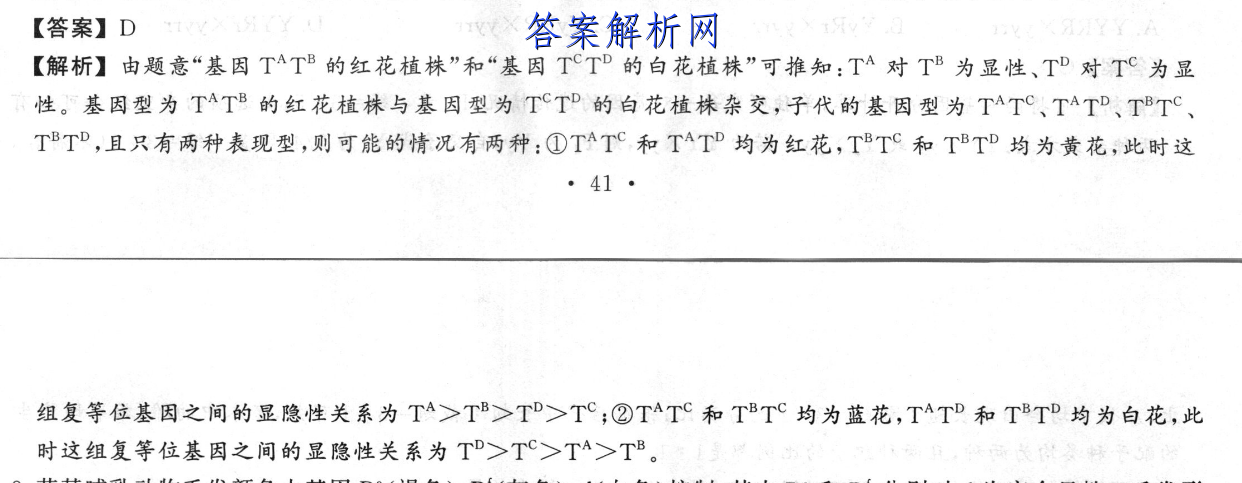 【答案】D
答案解析网
【解析】由题意“基因 TᴬTᴮ 的红花植株”和“基因 TᶜTᴰ 的白花植株”可推知:Tᴬ 对 Tᴮ 为显性、Tᴰ 对 Tᶜ 为显
性。基因型为 TᴬTᴮ 的红花植株与基因型为 TᶜTᴰ 的白花植株杂交,子代的基因型为 TᴬTᶜ、TᴬTᴰ、TᴮTᶜ、
TᴮTᴰ,且只有两种表现型,则可能的情况有两种:①TᴬTᶜ 和 TᴬTᴰ 均为红花,TᴮTᶜ 和 TᴮTᴰ 均为黄花,此时这
· 41 ·
组复等位基因之间的显隐性关系为 Tᴬ>Tᴮ>Tᴰ>Tᶜ;②TᴬTᶜ 和 TᴮTᶜ 均为蓝花,TᴬTᴰ 和 TᴮTᴰ 均为白花,此
时这组复等位基因之间的显隐性关系为 Tᴰ>Tᶜ>Tᴬ>Tᴮ。